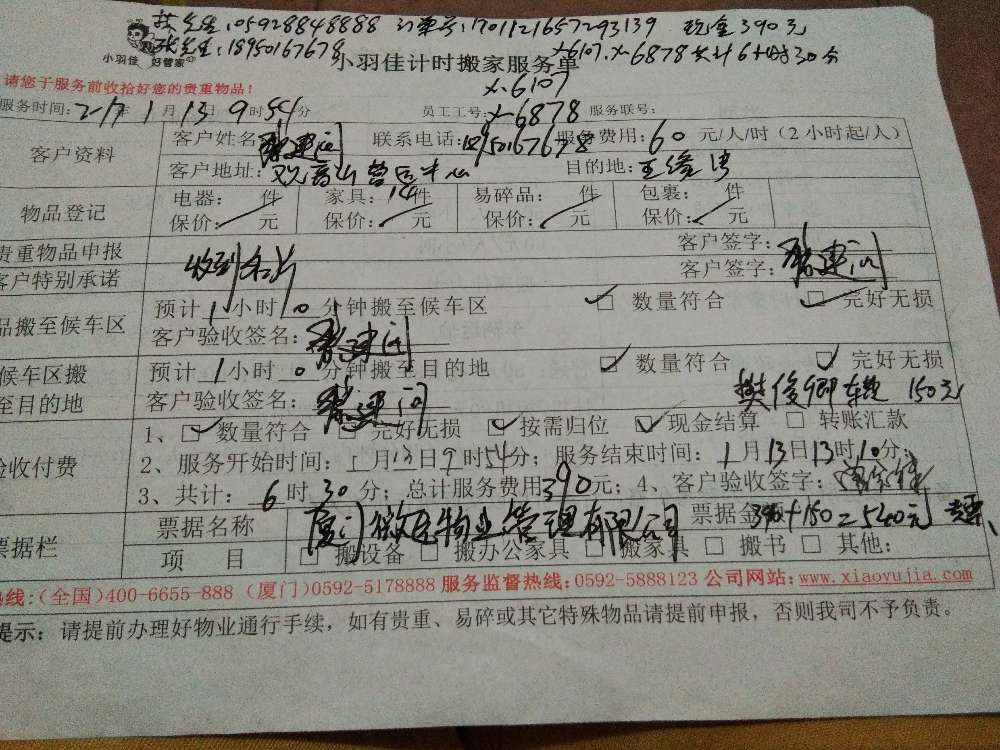 林先生:05928848888 订单号:17011216572 93139 现金390元
张先生:18950167678 X6107.X6878共计6小时30分
小羽佳 好管家 小羽佳计时搬家服务单
请您于服务前收拾好您的贵重物品! X6107
服务时间:217年1月13日9时54分 员工工号:X6878 服务联号:
客户资料 客户姓名 联系电话:18950167678 服务费用:60元/人/时(2小时起/人)
客户地址:观音山营运中心 目的地:
物品登记 电器: 件 家具:1件 易碎品: 件 包裹: 件
保价: 元 保价: 元 保价: 元 保价: 元
贵重物品申报 客户签字:
客户特别承诺 收到名片 客户签字:
品搬至候车区 预计1小时0分钟搬至候车区 数量符合 完好无损
客户验收签名:
候车区搬 预计1小时0分钟搬至目的地 数量符合 完好无损
至目的地 客户验收签名: 樊俊卿 150元
验收付费 1、数量符合 完好无损 按需归位 现金结算 转账汇款
2、服务开始时间:1月13日9时54分;服务结束时间:1月13日13时10分;
3、共计:6时30分;总计服务费用390元;4、客户验收签字:
票据栏 票据名称 厦门微医物业管理有限公司 票据金额 390+150=540元
项 目 搬设备 搬办公家具 搬家具 搬书 其他:
热线:(全国)400-6655-888 (厦门)0592-5178888 服务监督热线:0592-5888123 公司网站:www.xiaoyujia.com
提示:请提前办理好物业通行手续,如有贵重、易碎或其它特殊物品请提前申报,否则我司不予负责。